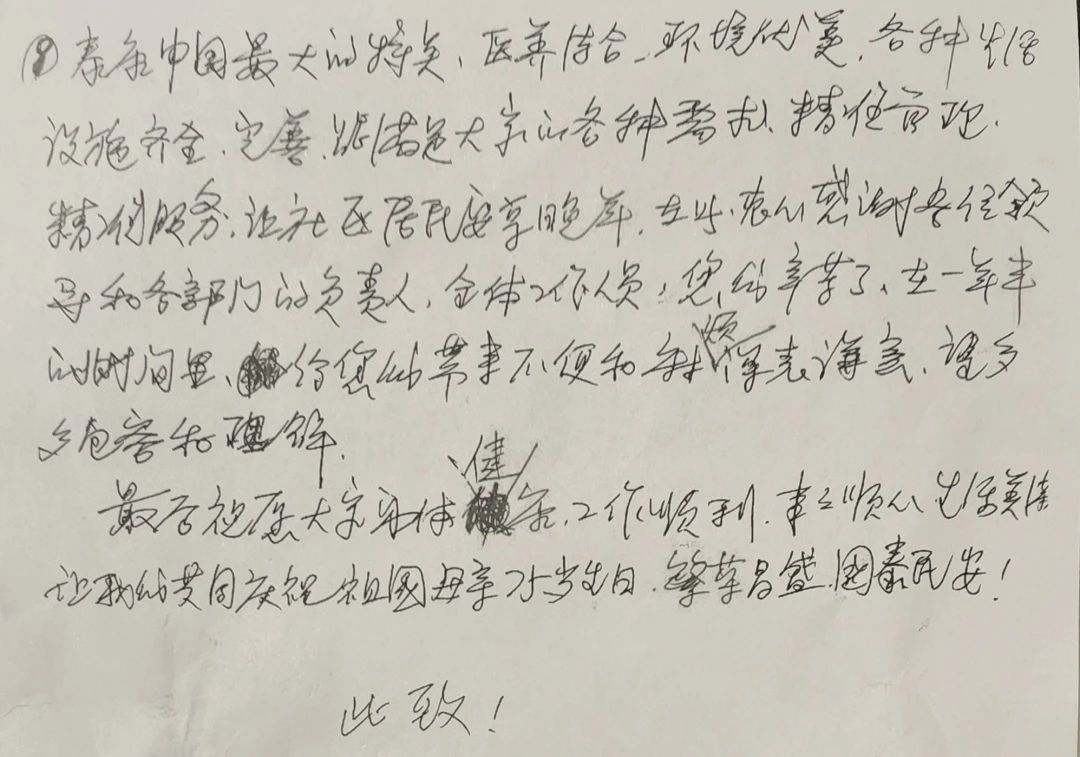 ⑧泰康中国最大的特点、医养结合、环境优美、各种生活
设施齐全、完善、能满足大家的各种需求、精准管理、
精细服务、让社区居民安享晚年、在此、衷心感谢各位领
导和各部门的负责人、全体工作人员，您们辛苦了、在一年半
的时间里、给您们带来不便和麻烦深表歉意、望多
多包容和理解、
最后祝愿大家身体健康、工作顺利、事事顺心生活美满
让我们共同庆祝祖国母亲75岁生日、繁荣昌盛、国泰民安！
此致！